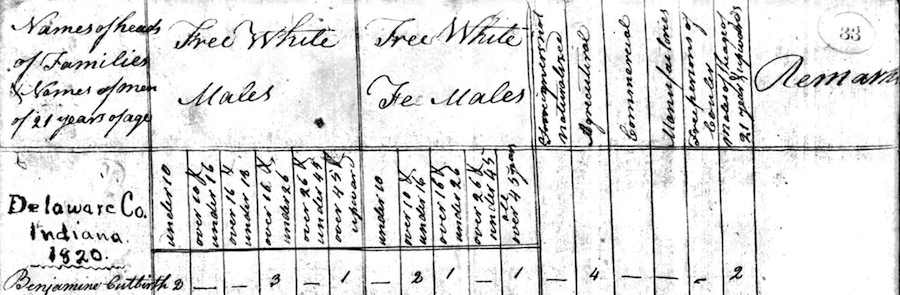 Names of heads
of Families
& Names of men
of 21 years of age
Free White
Males
Free White
Fe Males
Foreigners not
naturalized
Agricultural
Commercial
Manufactories
Free persons of
Couler
Males of the age of
21 years & upwards
33
Remark
Delaware Co.
Indiana.
1820.
under 10
over 10 &
under 16
over 16 &
under 18
over 16 &
under 26
over 26 &
under 45
over 45 &
upwards
under 10
over 10 &
under 16
over 16 &
under 26
over 26 &
under 45
over 45 years
Benjamine Cutbirth D — — 3 — 1 — 2 1 — 1 — 4 — — — 2